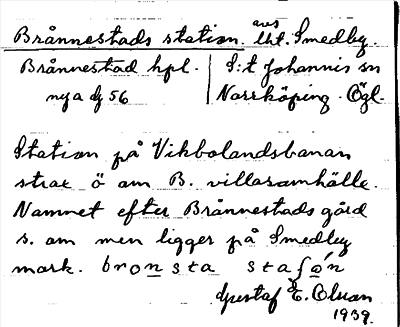 Brånnestads station. avs lht. Smedby.
Brånnestad hpl. S:t Johannis sn
nya dj 56 Norrköping. Ögl.
Station på Vikbolandsbanan
strax ö om B. villasamhälle.
Namnet efter Brånnestads gård
s. om men ligger på Smedby
mark. bronsta staʃón
Gustaf E. Olsson
1939.